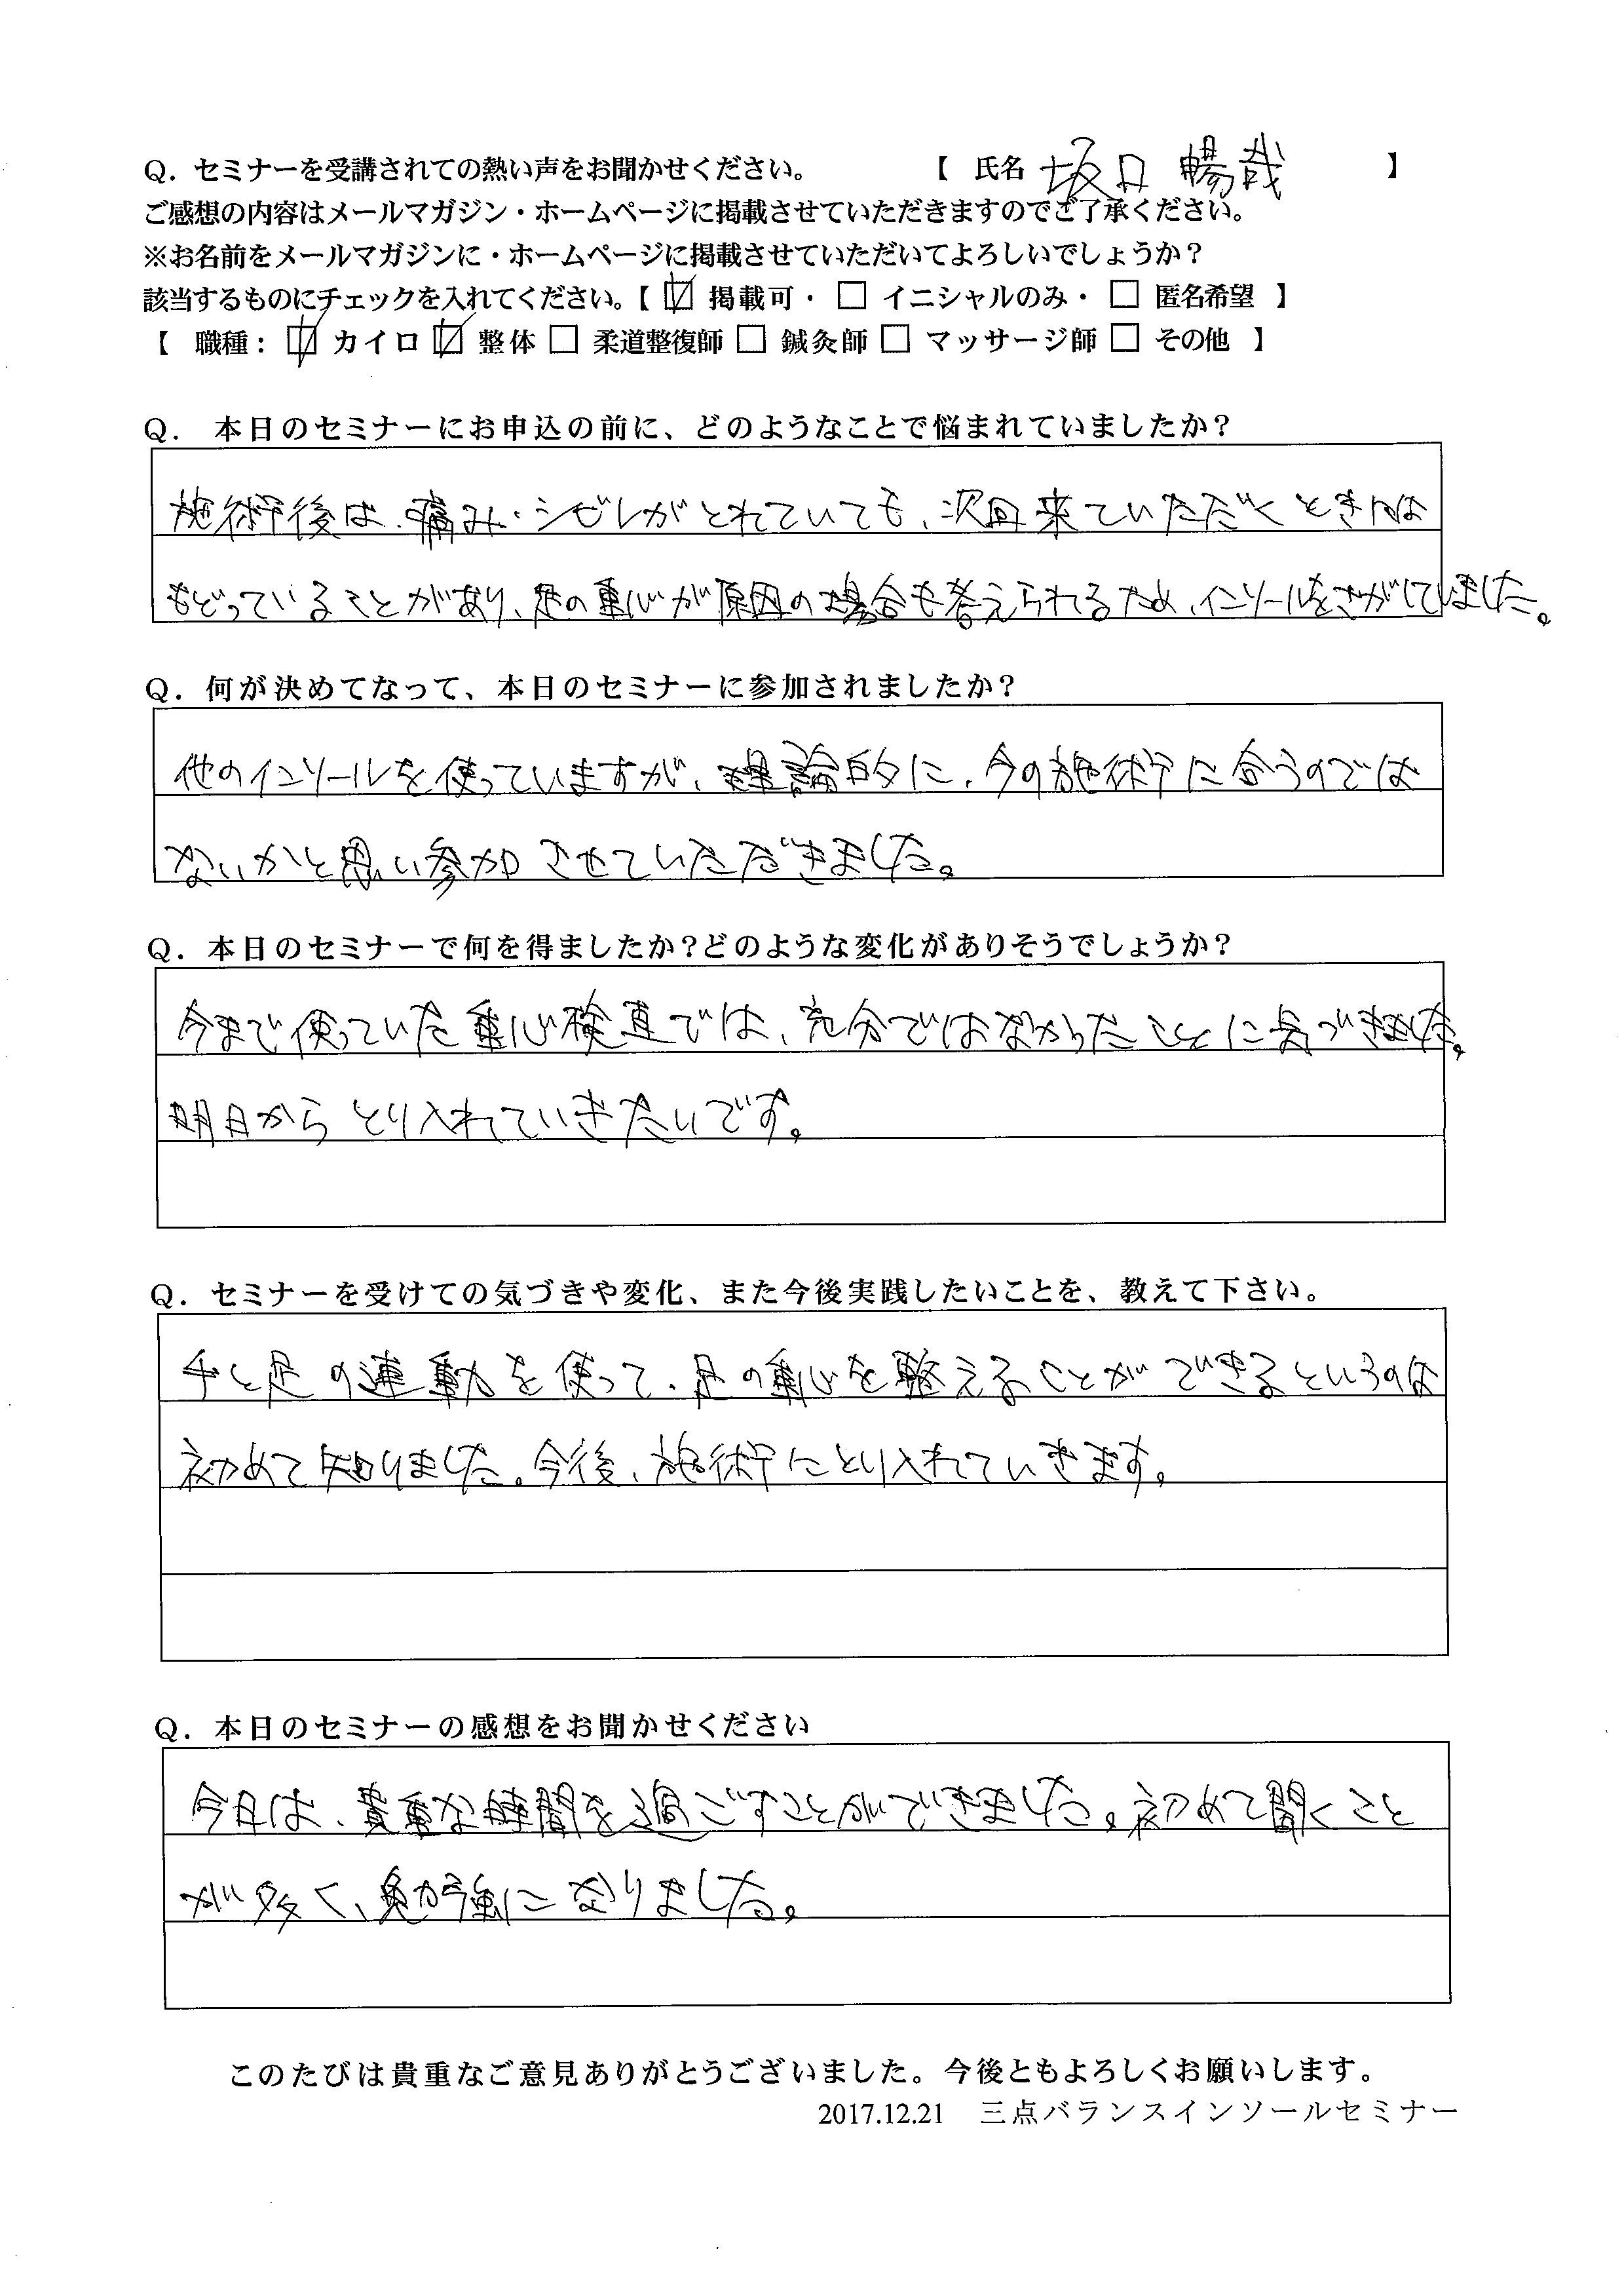 Q. セミナーを受講されての熱い声をお聞かせください。 【 氏名 坂口 暢哉 】
ご感想の内容はメールマガジン・ホームページに掲載させていただきますのでご了承ください。
※お名前をメールマガジンに・ホームページに掲載させていただいてよろしいでしょうか？
該当するものにチェックを入れてください。【 ☑ 掲載可・ □ イニシャルのみ・ □ 匿名希望 】
【 職種： ☑ カイロ ☑ 整体 □ 柔道整復師 □ 鍼灸師 □ マッサージ師 □ その他 】
Q. 本日のセミナーにお申込の前に、どのようなことで悩まれていましたか？
施術後は、痛み・シビレがとれていても、次回来ていただくときには
もどっていることがあり、足の重心が原因の場合も考えられるため、インソールをさがしてしました。
Q. 何が決めてなって、本日のセミナーに参加されましたか？
他のインソールを使っていますが、理論的に、今の施術に合うのでは
ないかと思い参加させていただきました。
Q. 本日のセミナーで何を得ましたか？どのような変化がありそうでしょうか？
今まで使っていた重心検査では、充分ではなかったことに気づきました。
明日からとり入れていきたいです。
Q. セミナーを受けての気づきや変化、また今後実践したいことを、教えて下さい。
手と足の連動を使って、足の重心を整えることができるというのは
初めて知りました。今後、施術にとり入れていきます。
Q. 本日のセミナーの感想をお聞かせください
今日は、貴重な時間を過ごすことができました。初めて聞くこと
が多く、勉強になりました。
このたびは貴重なご意見ありがとうございました。今後ともよろしくお願いします。
2017.12.21 三点バランスインソールセミナー